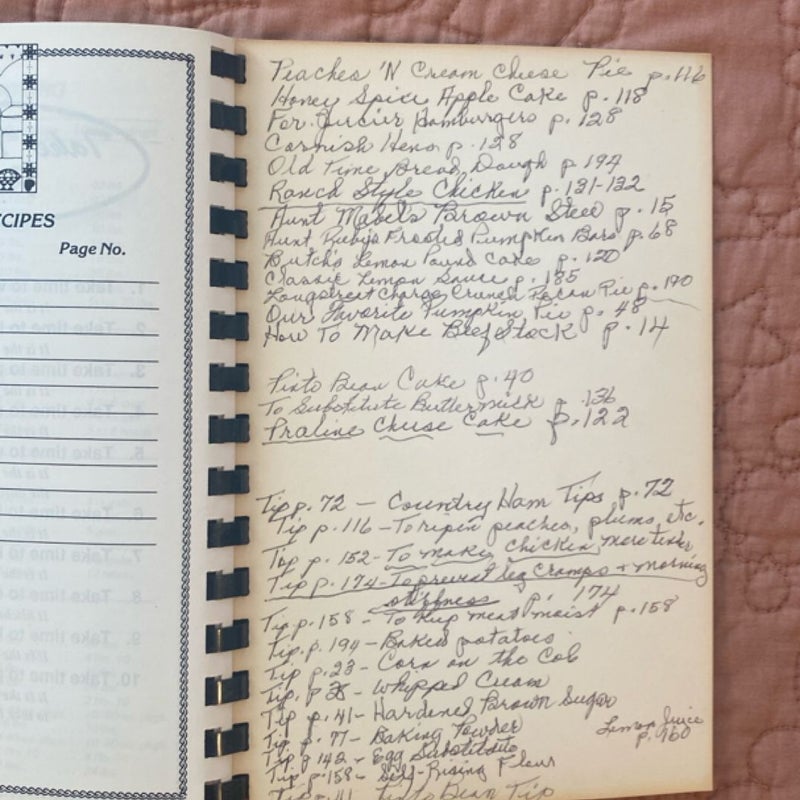 ECIPES
Page No.
Peaches 'N Cream Cheese Pie p. 116
Honey Spice Apple Cake p. 118
For Juicier Hamburgers p. 128
Cornish Hens p. 128
Old Time Bread Dough p. 194
Ranch Style Chicken p. 131-132
Aunt Mabel's Brown Stew p. 15
Aunt Ruby's Frosted Pumpkin Bars p. 68
Butch's Lemon Pound Cake p. 120
Classic Lemon Sauce p. 185
Longstreet Charge Crunch Pecan Pie p. 190
Our Favorite Pumpkin Pie p. 48
How To Make Beef Stock p. 14
Pinto Bean Cake p. 40
To Substitute Buttermilk p. 136
Praline Cheese Cake p. 122
Tip p. 72 - Country Ham Tips p. 72
Tip p. 116 - To ripen peaches, plums, etc.
Tip p. 152 - To make chicken more tender
Tip p. 174 - To prevent leg cramps + morning
stiffness p. 174
Tip p. 158 - To Keep meat moist p. 158
Tip. p. 194 - Baked potatoes
Tip p. 23 - Corn on the Cob
Tip. p - Whipped Cream
Tip p. 41 - Hardened Brown Sugar
Tip. p. 77 - Baking Powder
Lemon Juice
p. 160
Tip p 142 - Egg Substitute
Tip p. 158 - Self-Rising Flour
Tip p. 41 Pinto Bean Tip